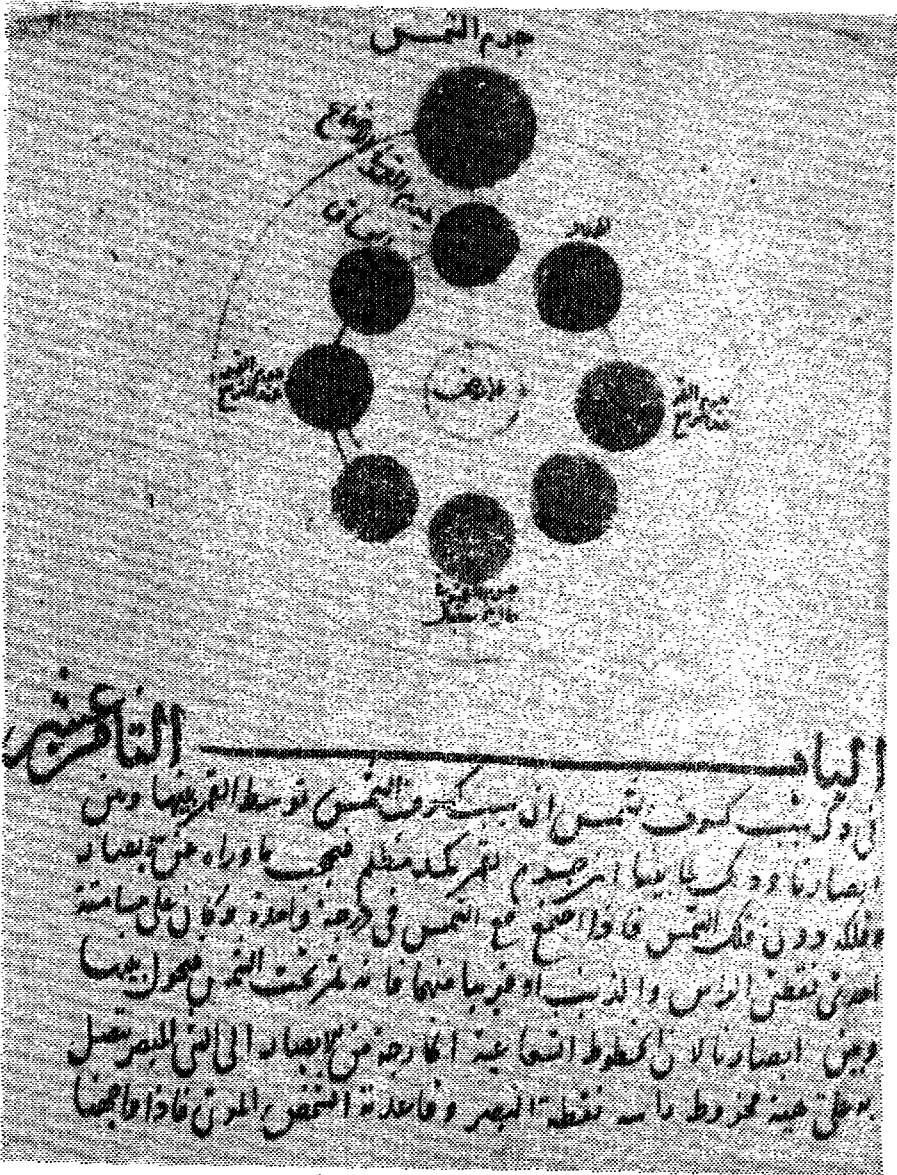 جرم الشمس
جرم القمر
الاجتماع
المحاق
الهلال
جرم القمر
عند التربيع
الأرض
جرم القمر
عند التربيع
جرم القمر
الباب الثامن عشر
في ذكر سبب كسوف الشمس ان سبب كسوف الشمس توسط القمر بينها وبين
ابصارنا وذلك لما بينا ان جرم القمر كمد مظلم فيحجب ما وراءه عن الابصار
وفلكه دون فلك الشمس فاذا اجتمع مع الشمس في درجة واحدة وكان على مسامتة
احدى نقطتي الراس والذنب او قريبا منهما فانه يمر تحت الشمس فيحول بينها
وبين ابصارنا لان الخطوط الشعاعية الخارجة من الابصار الى الشئ المبصر تتصل
به على هيئة مخروط راسه نقطة البصر وقاعدته الشخص المرئي فاذا واجهنا